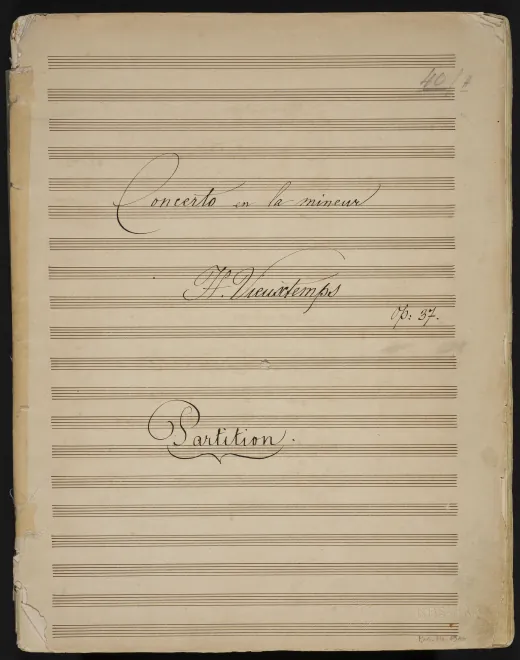 40/
Concerto en la mineur
H. Vieuxtemps
Op: 37.
Partition.